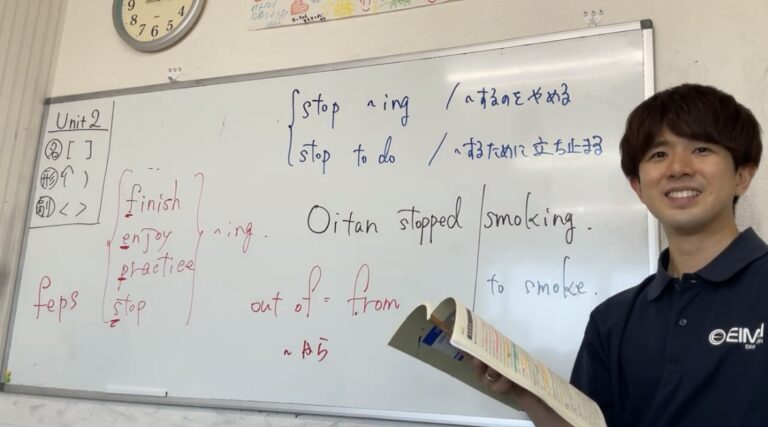 9
8
7 6 5 4
Unit 2
名 [ ]
形 ( )
副 < >
{ stop ~ing / ~するのをやめる
stop to do / ~するために立ち止まる
feps
{ finish
enjoy
practice
stop
} ~ing.
Oitan stopped | smoking.
to smoke.
out of = from
~から
EIM